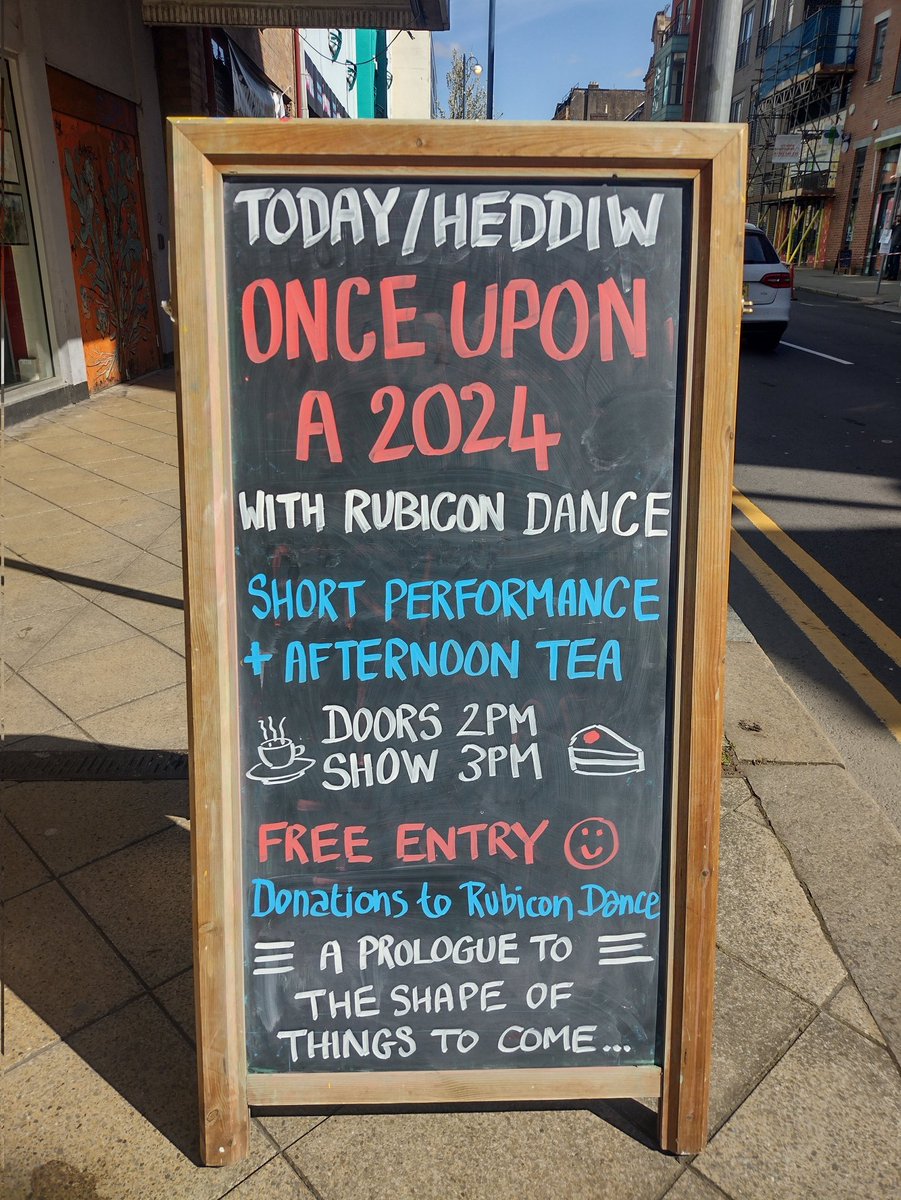 TODAY/HEDDIW
ONCE UPON
A 2024
WITH RUBICON DANCE
SHORT PERFORMANCE
+ AFTERNOON TEA
DOORS 2PM
SHOW 3PM
FREE ENTRY
Donations to Rubicon Dance
A PROLOGUE TO
THE SHAPE OF
THINGS TO COME...